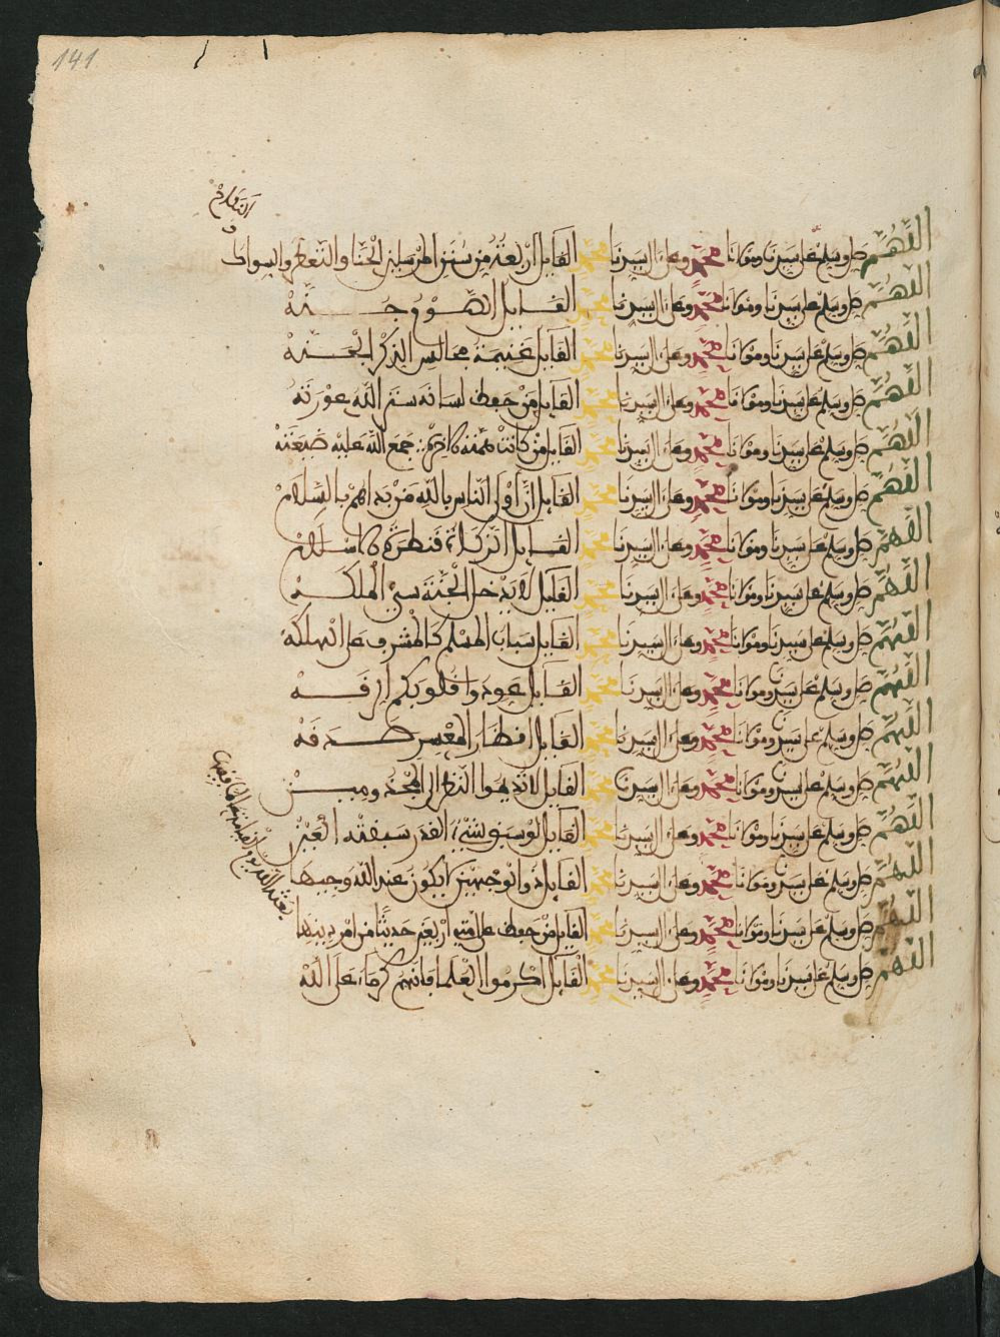 141
اللهم صل وسلم على سيدنا ومولانا محمد وعلى ال سيدنا محمد القايل اربعة من سنن المرسلين الحنا والتعطر والسواك
والنكاح
اللهم صل وسلم على سيدنا ومولانا محمد وعلى ال سيدنا محمد القايل الصوم جنة
اللهم صل وسلم على سيدنا ومولانا محمد وعلى ال سيدنا محمد القايل غنيمة مجالس الذكر الجنة
اللهم صل وسلم على سيدنا ومولانا محمد وعلى ال سيدنا محمد القايل من حفظ لسانه ستر الله عورته
اللهم صل وسلم على سيدنا ومولانا محمد وعلى ال سيدنا محمد القايل من كانت همته الاخرة جمع الله عليه ضيعته
اللهم صل وسلم على سيدنا ومولانا محمد وعلى ال سيدنا محمد القايل ان اولى الناس بالله من بداهم بالسلام
اللهم صل وسلم على سيدنا ومولانا محمد وعلى ال سيدنا محمد القايل الزكاة قنطرة الاسلام
اللهم صل وسلم على سيدنا ومولانا محمد وعلى ال سيدنا محمد القايل لا يدخل الجنة سيئ الملكة
اللهم صل وسلم على سيدنا ومولانا محمد وعلى ال سيدنا محمد القايل سباب المسلم كالمشرف على الهلكة
اللهم صل وسلم على سيدنا ومولانا محمد وعلى ال سيدنا محمد القايل عودوا قلوبكم الرقة
اللهم صل وسلم على سيدنا ومولانا محمد وعلى ال سيدنا محمد القايل انظار المعسر صدقة
اللهم صل وسلم على سيدنا ومولانا محمد وعلى ال سيدنا محمد القايل لا تديموا النظر الى المجذومين
اللهم صل وسلم على سيدنا ومولانا محمد وعلى ال سيدنا محمد القايل لو سبق شيء القدر سبقته العين
اللهم صل وسلم على سيدنا ومولانا محمد وعلى ال سيدنا محمد القايل ذو الوجهين لا يكون عند الله وجيها
اللهم صل وسلم على سيدنا ومولانا محمد وعلى ال سيدنا محمد القايل من حفظ على امتي اربعين حديثا من امر دينها
بعثه الله يوم القيامة
اللهم صل وسلم على سيدنا ومولانا محمد وعلى ال سيدنا محمد القايل اكرموا العلما فانهم كرماء على الله